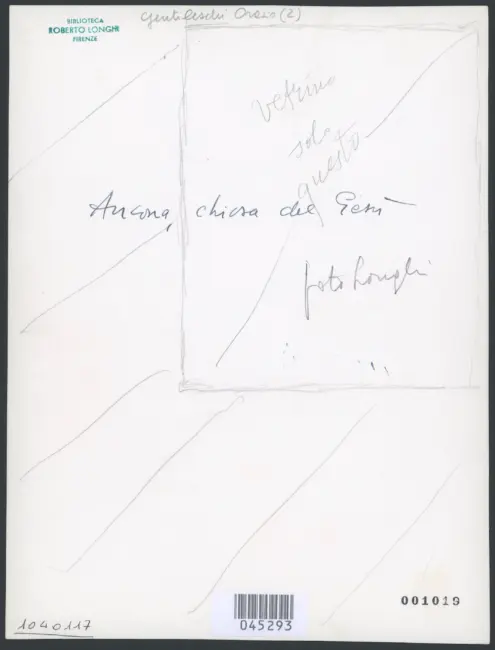 Gentileschi Orazio (2)
BIBLIOTECA
ROBERTO LONGHI
FIRENZE
vetrino
solo
questo
Ancona, chiesa del Gesù
foto Longhi
001019
045293
1040117